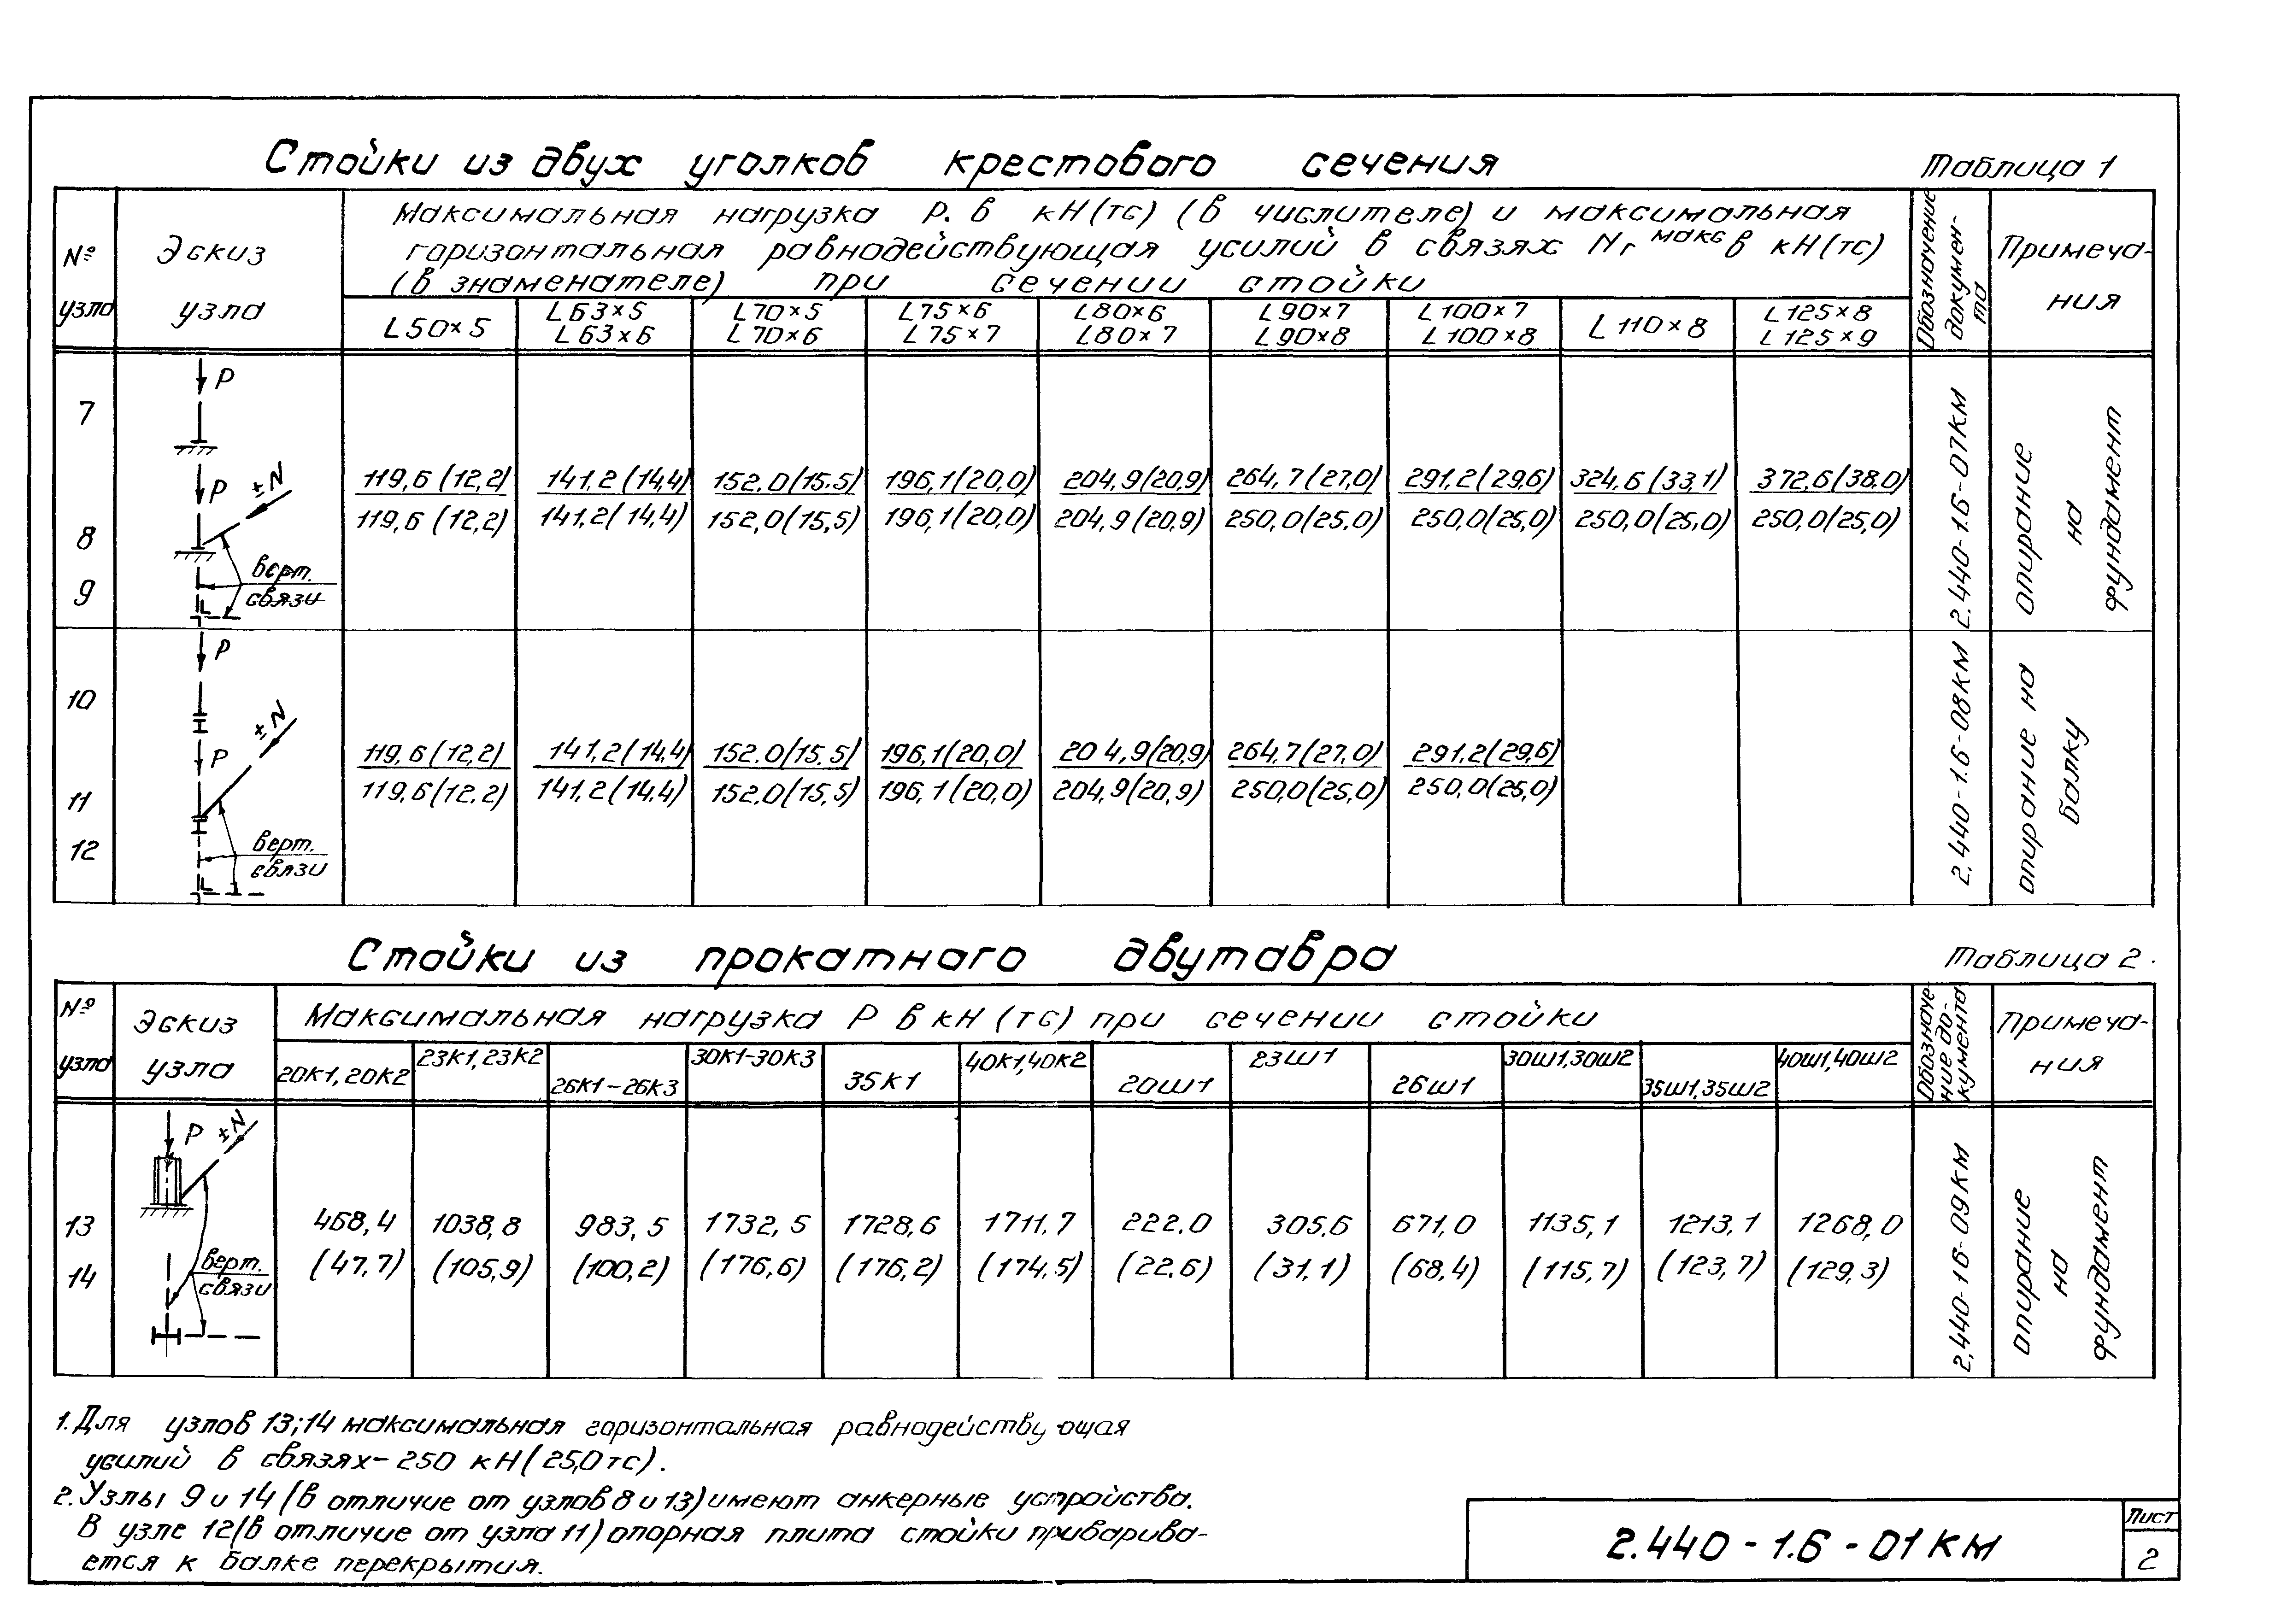 Стойки из двух уголков крестового сечения
Таблица 1
№ узла
Эскиз узла
Максимальная нагрузка P. в кН(тс) (в числителе) и максимальная
горизонтальная равнодействующая усилий в связях Nг макс в кН(тс)
(в знаменателе) при сечении стойки
Обозначение документа
Примечания
L50×5
L63×5 L63×6
L70×5 L70×6
L75×6 L75×7
L80×6 L80×7
L90×7 L90×8
L100×7 L100×8
L110×8
L125×8 L125×9
7
8
9
P
P ±N
верт. связи
119,6 (12,2) 141,2(14,4) 152.0(15.5) 196,1(20,0) 204,9(20,9) 264,7(27,0) 291.2(29,6) 324.6(33,1) 372,6(38.0)
119,6 (12,2) 141,2(14,4) 152,0(15,5) 196,1(20,0) 204,9(20,9) 250,0(25,0) 250,0(25,0) 250,0(25,0) 250,0(25,0)
2.440-1.6-07КМ
опирание на фундамент
10
11
12
P
P ±N
верт. связи
119,6(12,2) 141,2(14,4) 152.0(15.5) 196,1(20,0) 204,9(20,9) 264,7(27,0) 291.2(29,6)
119,6(12.2) 141,2(14,4) 152.0(15,5) 196,1(20,0) 204,9(20,9) 250,0(25,0) 250,0(25,0)
2.440-1.6-08КМ
опирание на балку
Стойки из прокатного двутавра
Таблица 2.
№ узла
Эскиз узла
Максимальная нагрузка P в кН (тс) при сечении стойки
Обозначение документа
Примечания
20К1,20К2 23К1,23К2 26К1-26К3 30К1-30К3 35К1 40К1,40К2 20Ш1 23Ш1 26Ш1 30Ш1,30Ш2 35Ш1,35Ш2 40Ш1,40Ш2
13
14
P ±N
верт. связи
468,4 1038,8 983,5 1732,5 1728,6 1711,7 222.0 305.6 671,0 1135,1 1213,1 1268,0
(47,7) (105,9) (100,2) (176,6) (176,2) (174.5) (22.6) (31.1) (68,4) (115,7) (123,7) (129,3)
2.440-1.6-09КМ
опирание на фундамент
1. Для узлов 13;14 максимальная горизонтальная равнодействующая
усилий в связях-250 кН(25,0тс).
2. Узлы 9 и 14 (в отличие от узлов 8 и 13) имеют анкерные устройства.
В узле 12(в отличие от узла 11) опорная плита стойки приварива-
ется к балке перекрытия.
2.440-1.6-01КМ
Лист
2